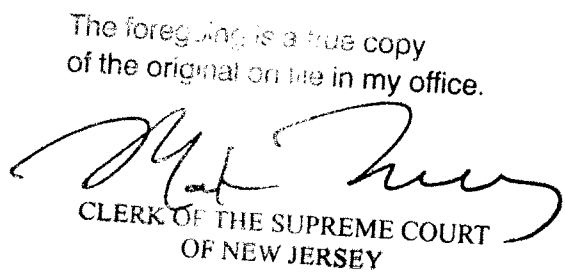 The foregoing is a true copy
of the original on file in my office.
CLERK OF THE SUPREME COURT
OF NEW JERSEY